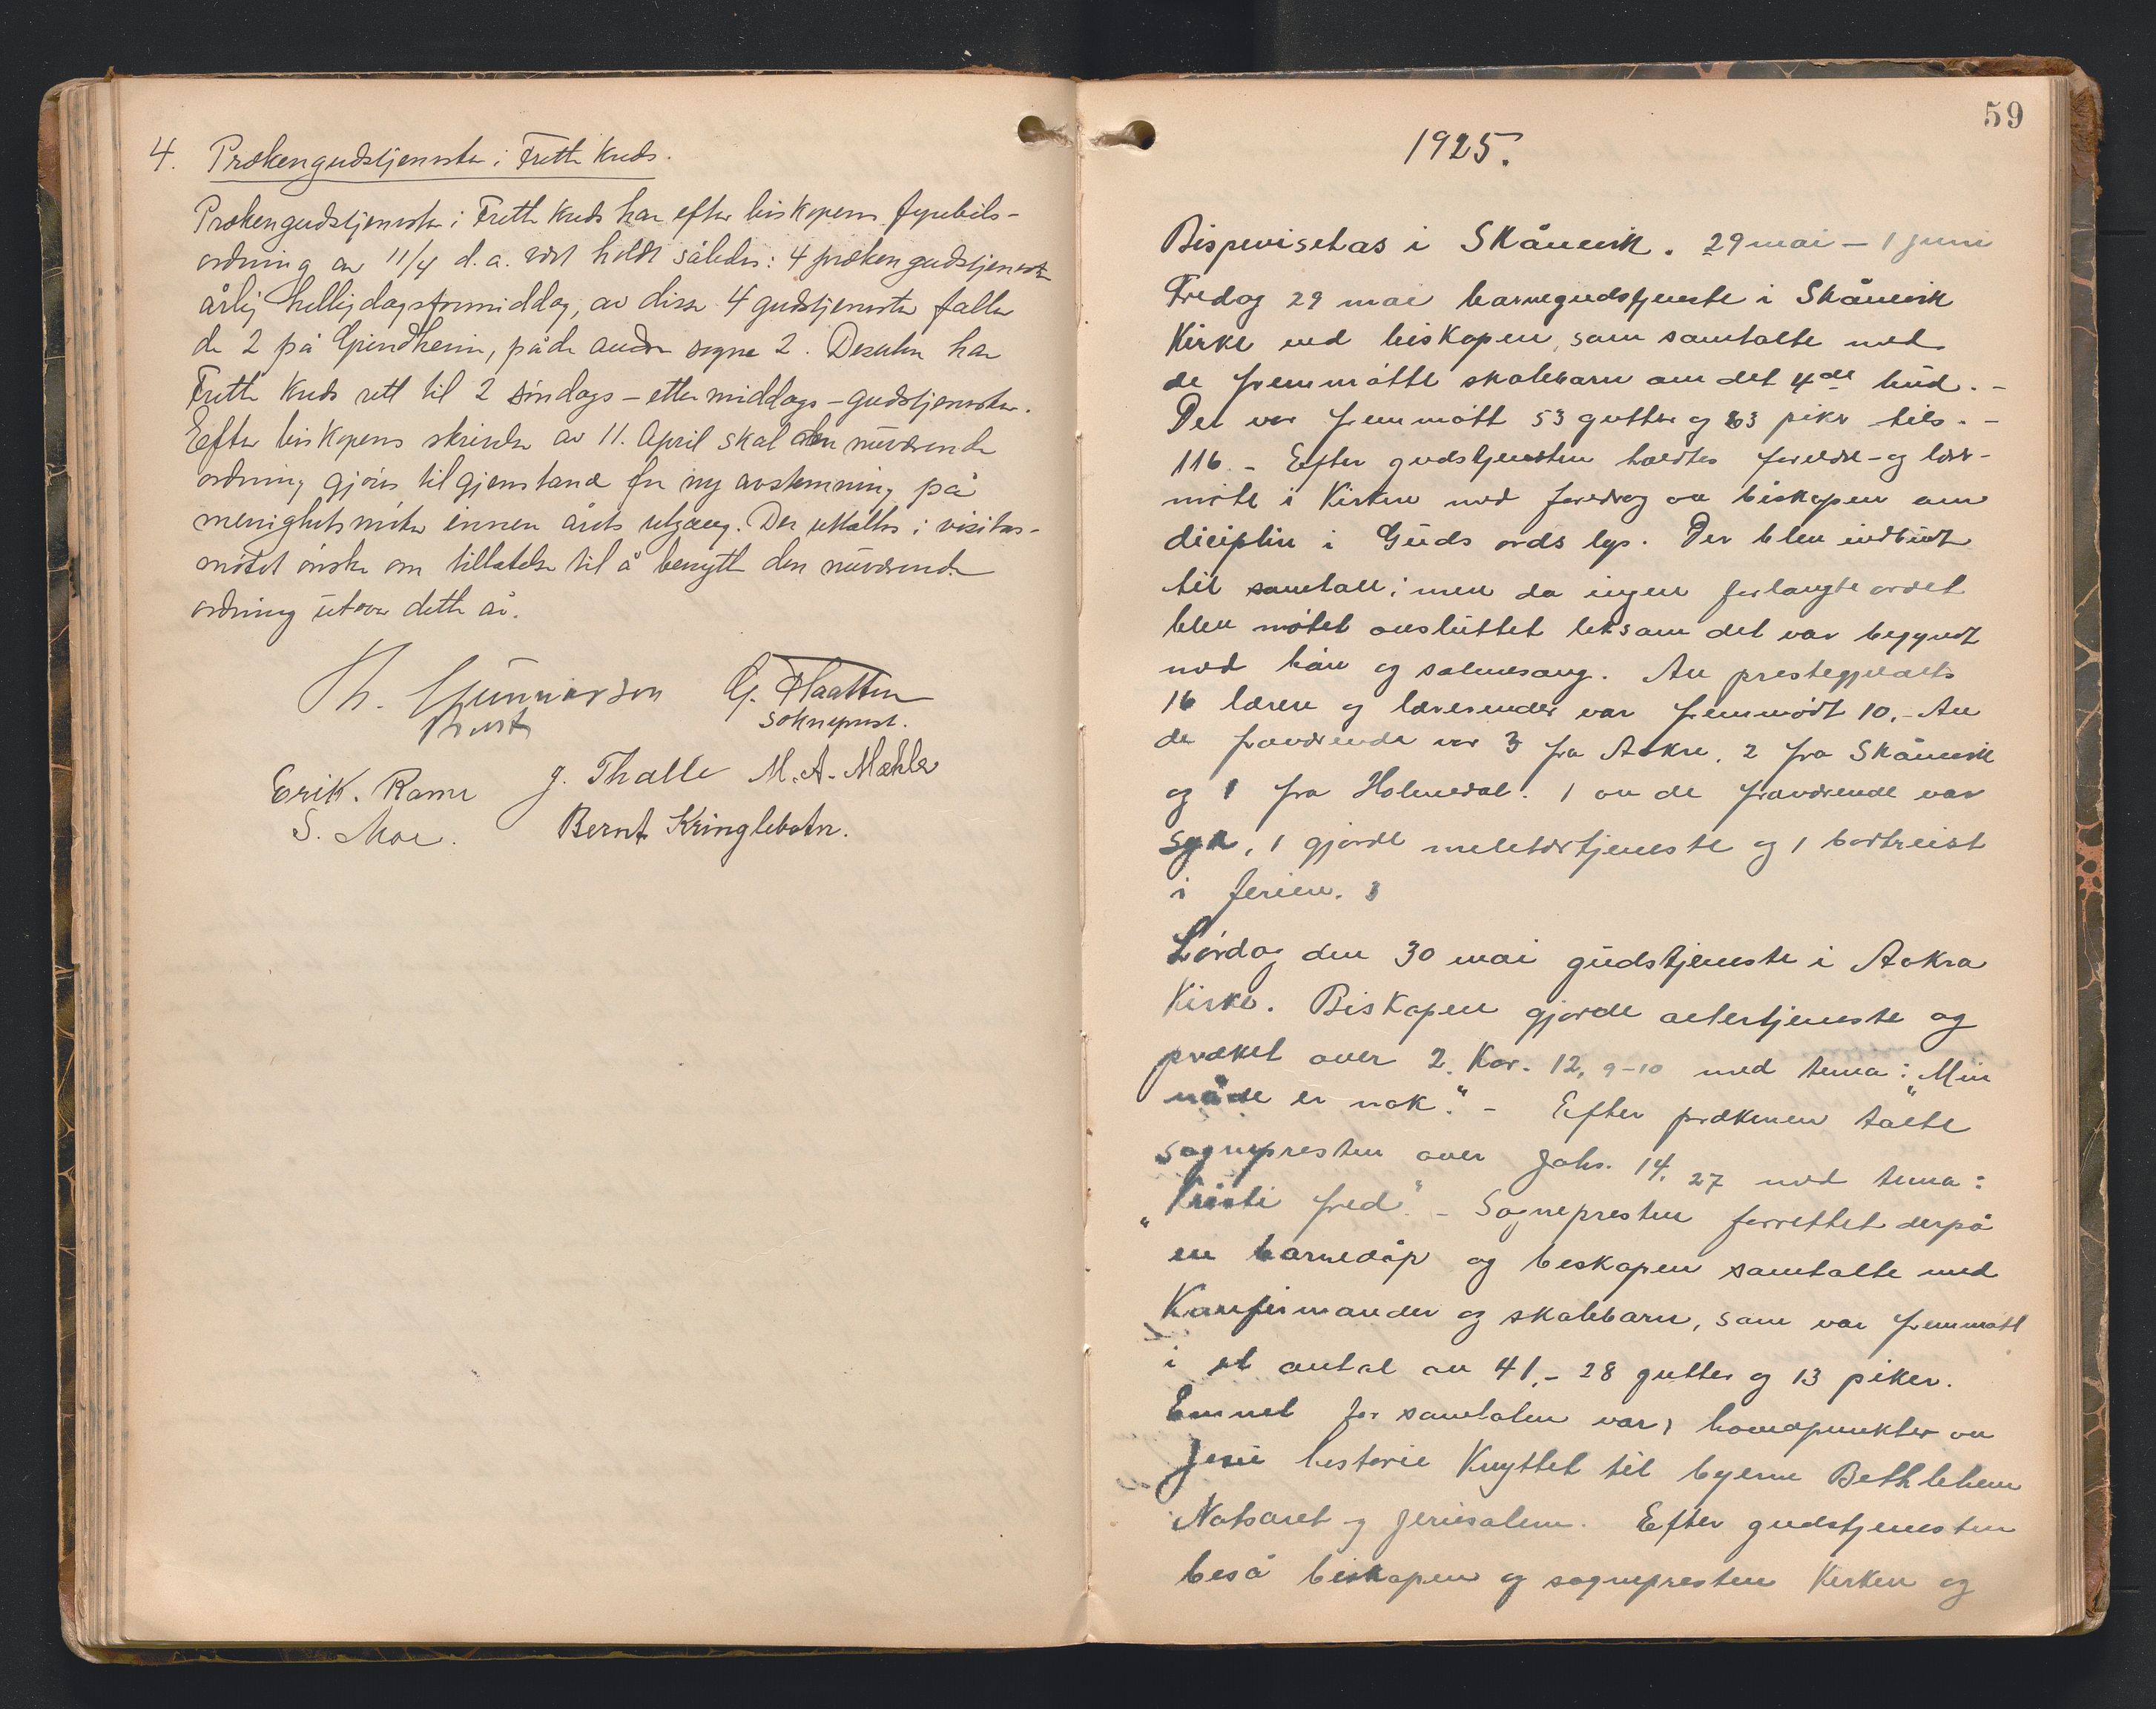 4. Prækengudstjenester i Frette Kreds.
Prækengudstjenester i Frette Kreds har efter biskopens fyrebils-
ordning av 11/4 d.a. vært holdt således: 4 prækengudstjenester
årlig helligdagsformiddag, av disse 4 gudstjenester faller
de 2 på Grindheim, på de andre sogne 2. Desuten har
Frette Kreds rett til 2 søndags-ettermiddags-gudstjenester.
Efter biskopens skrivelse av 11. April skal den nuværende
ordning gjøres til gjenstand for ny avstemning på
menighetsmøter innen årets utgang. Der uttaltes i visitas-
møtet ønske om tillatelse til å benytte den nuværende
ordning utover dette år.
Th. Gunnarson G. Flaatten
Prost sokneprest.
Erik. Rame J. Thalle M. A. Mæhle
S. Moe. Bernt Kringlebotn.
59
1925.
Bispevisitas i Skånevik. 29 mai – 1 juni
Fredag 29 mai barnegudstjeneste i Skånevik
Kirke ved biskopen, som samtalte med
de fremmøtte skolebarn om det 4de bud. -
Det var fremmøtt 53 gutter og 63 piker tils. -
116. - Efter gudstjenesten holdtes foreldre- og lærer-
møte i Kirken med foredrag av biskopen om
diciplin i Guds ords lys. Der blev indbudt
til samtale; men da ingen forlangte ordet
blev møtet avsluttet liksom det var begyndt
med bøn og salmesang. Av prestegjeldets
16 lærere og lærerinder var fremmødt 10. - Av
de fraværende var 3 fra Aakre, 2 fra Skånevik
og 1 fra Holmedal. 1 av de fraværende var
syk, 1 gjorde militærtjeneste og 1 bortreist
i ferien. 3
Lørdag den 30 mai gudstjeneste i Aakra
Kirke. Biskopen gjorde altertjeneste og
præket over 2. Kor. 12, 9-10 med tema: „Min
nåde er nok." - Efter prækenen talte
sognepresten over Joh. 14, 27 med tema:
„Kristi fred". - Sognepresten forrettet derpå
en barnedåp og biskopen samtalte med
Konfirmander og skolebarn, som var fremmøtt
i et antal av 41, - 28 gutter og 13 piker.
Emnet for samtalen var, hovedpunkter av
Jesu historie Knyttet til byerne Bethlehem
Natsaret og Jerusalem. Efter gudstjenesten
beså biskopen og sognepresten Kirken og